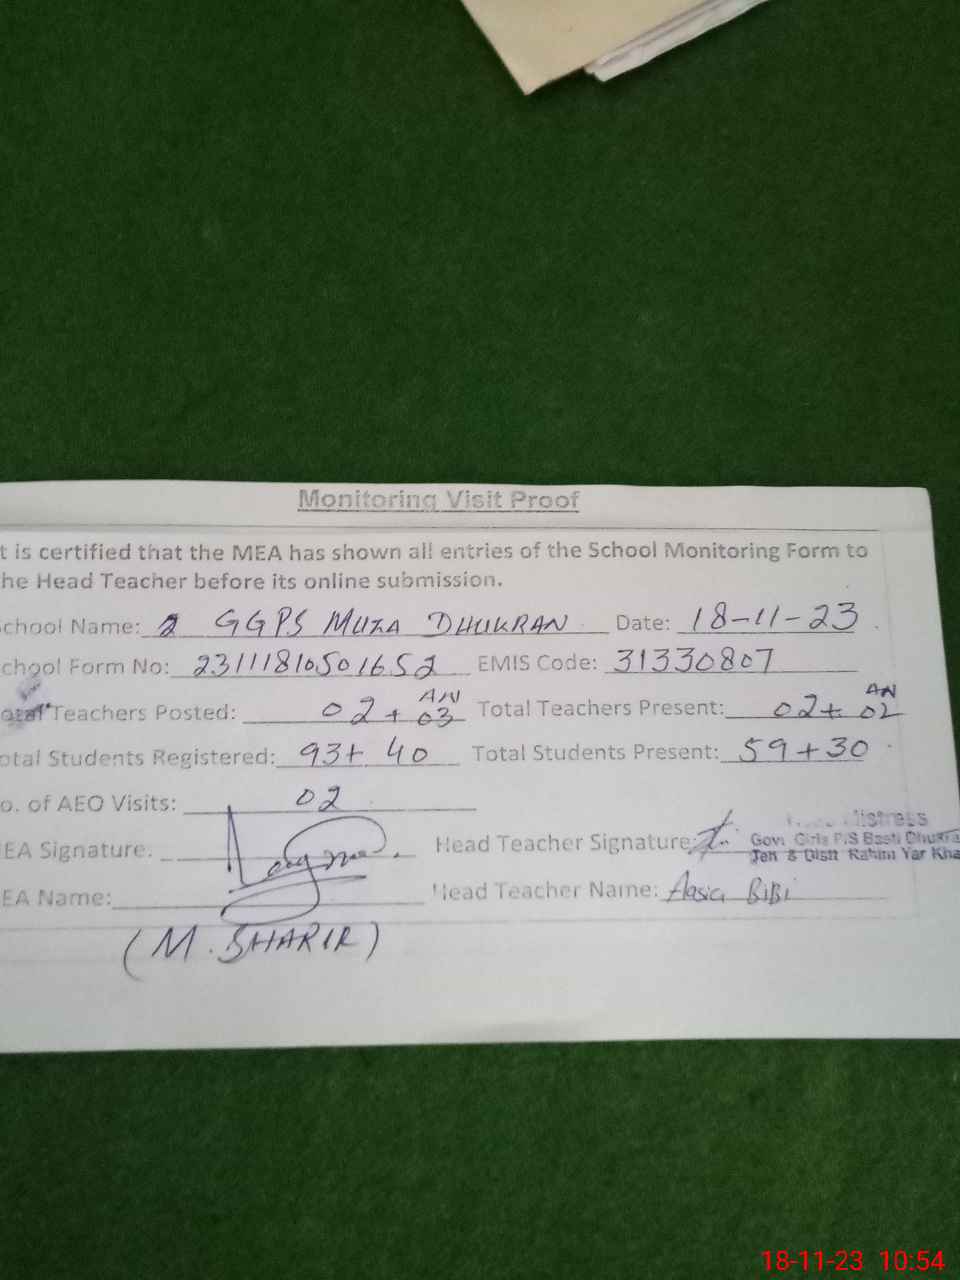 Monitoring Visit Proof
t is certified that the MEA has shown all entries of the School Monitoring Form to
he Head Teacher before its online submission.
chool Name: 2 GGPS MUZA DHUKRAN Date: 18-11-23
chool Form No: 23111810501652 EMIS Code: 31330807
otal Teachers Posted: 02 + 03 AN Total Teachers Present: 02 + 02 AN
otal Students Registered: 93 + 40 Total Students Present: 59 + 30
o. of AEO Visits: 02
EA Signature. Head Teacher Signature
Mistress
Govt Girls P/S Basti Dhukra
Teh & Distt Rahim Yar Kha
EA Name: Head Teacher Name: Aasia BiBi
(M. SHAKIR)
18-11-23 10:54